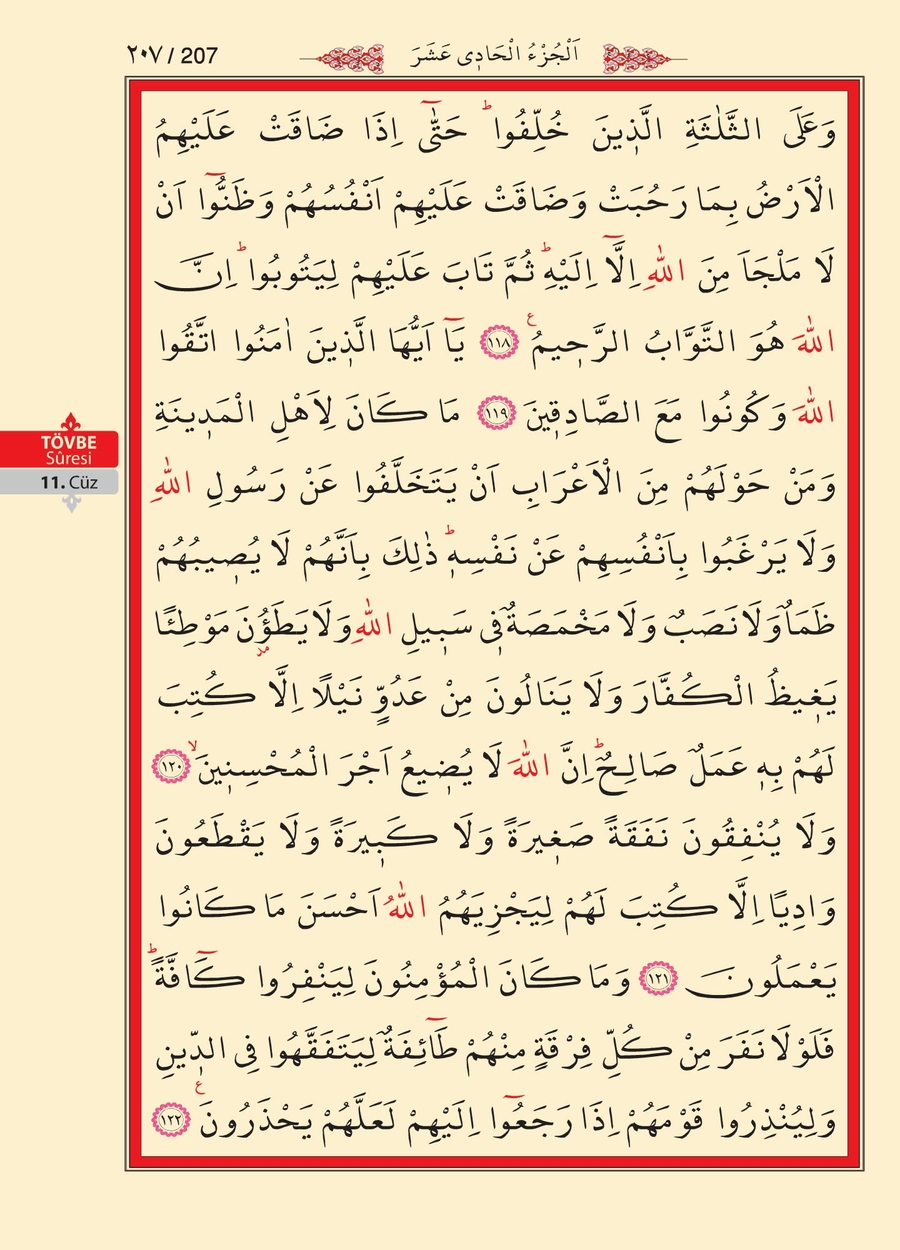 ٢٠٧ / 207
اَلْجُزْءُ الْحَادٖى عَشَرَ
وَعَلَى الثَّلٰثَةِ الَّذٖينَ خُلِّفُواؕ حَتّٰٓى اِذَا ضَاقَتْ عَلَيْهِمُ
الْاَرْضُ بِمَا رَحُبَتْ وَضَاقَتْ عَلَيْهِمْ اَنْفُسُهُمْ وَظَنُّٓوا اَنْ
لَا مَلْجَاَ مِنَ اللّٰهِ اِلَّٓا اِلَيْهِؕ ثُمَّ تَابَ عَلَيْهِمْ لِيَتُوبُواؕ اِنَّ
اللّٰهَ هُوَ التَّوَّابُ الرَّحٖيمُࣖ ﴿١١٨﴾ يَٓا اَيُّهَا الَّذٖينَ اٰمَنُوا اتَّقُوا
اللّٰهَ وَكُونُوا مَعَ الصَّادِقٖينَ ﴿١١٩﴾ مَا كَانَ لِاَهْلِ الْمَدٖينَةِ
وَمَنْ حَوْلَهُمْ مِنَ الْاَعْرَابِ اَنْ يَتَخَلَّفُوا عَنْ رَسُولِ اللّٰهِ
وَلَا يَرْغَبُوا بِاَنْفُسِهِمْ عَنْ نَفْسِهٖؕ ذٰلِكَ بِاَنَّهُمْ لَا يُصٖيبُهُمْ
ظَمَاٌ وَلَا نَصَبٌ وَلَا مَخْمَصَةٌ فٖى سَبٖيلِ اللّٰهِ وَلَا يَطَؤُنَ مَوْطِئًا
يَغٖيظُ الْكُفَّارَ وَلَا يَنَالُونَ مِنْ عَدُوٍّ نَيْلًا اِلَّا كُتِبَ
لَهُمْ بِهٖ عَمَلٌ صَالِحٌؕ اِنَّ اللّٰهَ لَا يُضٖيعُ اَجْرَ الْمُحْسِنٖينَۙ ﴿١٢٠﴾
وَلَا يُنْفِقُونَ نَفَقَةً صَغٖيرَةً وَلَا كَبٖيرَةً وَلَا يَقْطَعُونَ
وَادِيًا اِلَّا كُتِبَ لَهُمْ لِيَجْزِيَهُمُ اللّٰهُ اَحْسَنَ مَا كَانُوا
يَعْمَلُونَ ﴿١٢١﴾ وَمَا كَانَ الْمُؤْمِنُونَ لِيَنْفِرُوا كَٓافَّةًؕ
فَلَوْلَا نَفَرَ مِنْ كُلِّ فِرْقَةٍ مِنْهُمْ طَٓائِفَةٌ لِيَتَفَقَّهُوا فِى الدّٖينِ
وَلِيُنْذِرُوا قَوْمَهُمْ اِذَا رَجَعُٓوا اِلَيْهِمْ لَعَلَّهُمْ يَحْذَرُونَࣖ ﴿١٢٢﴾
TÖVBE
Sûresi
11. Cüz